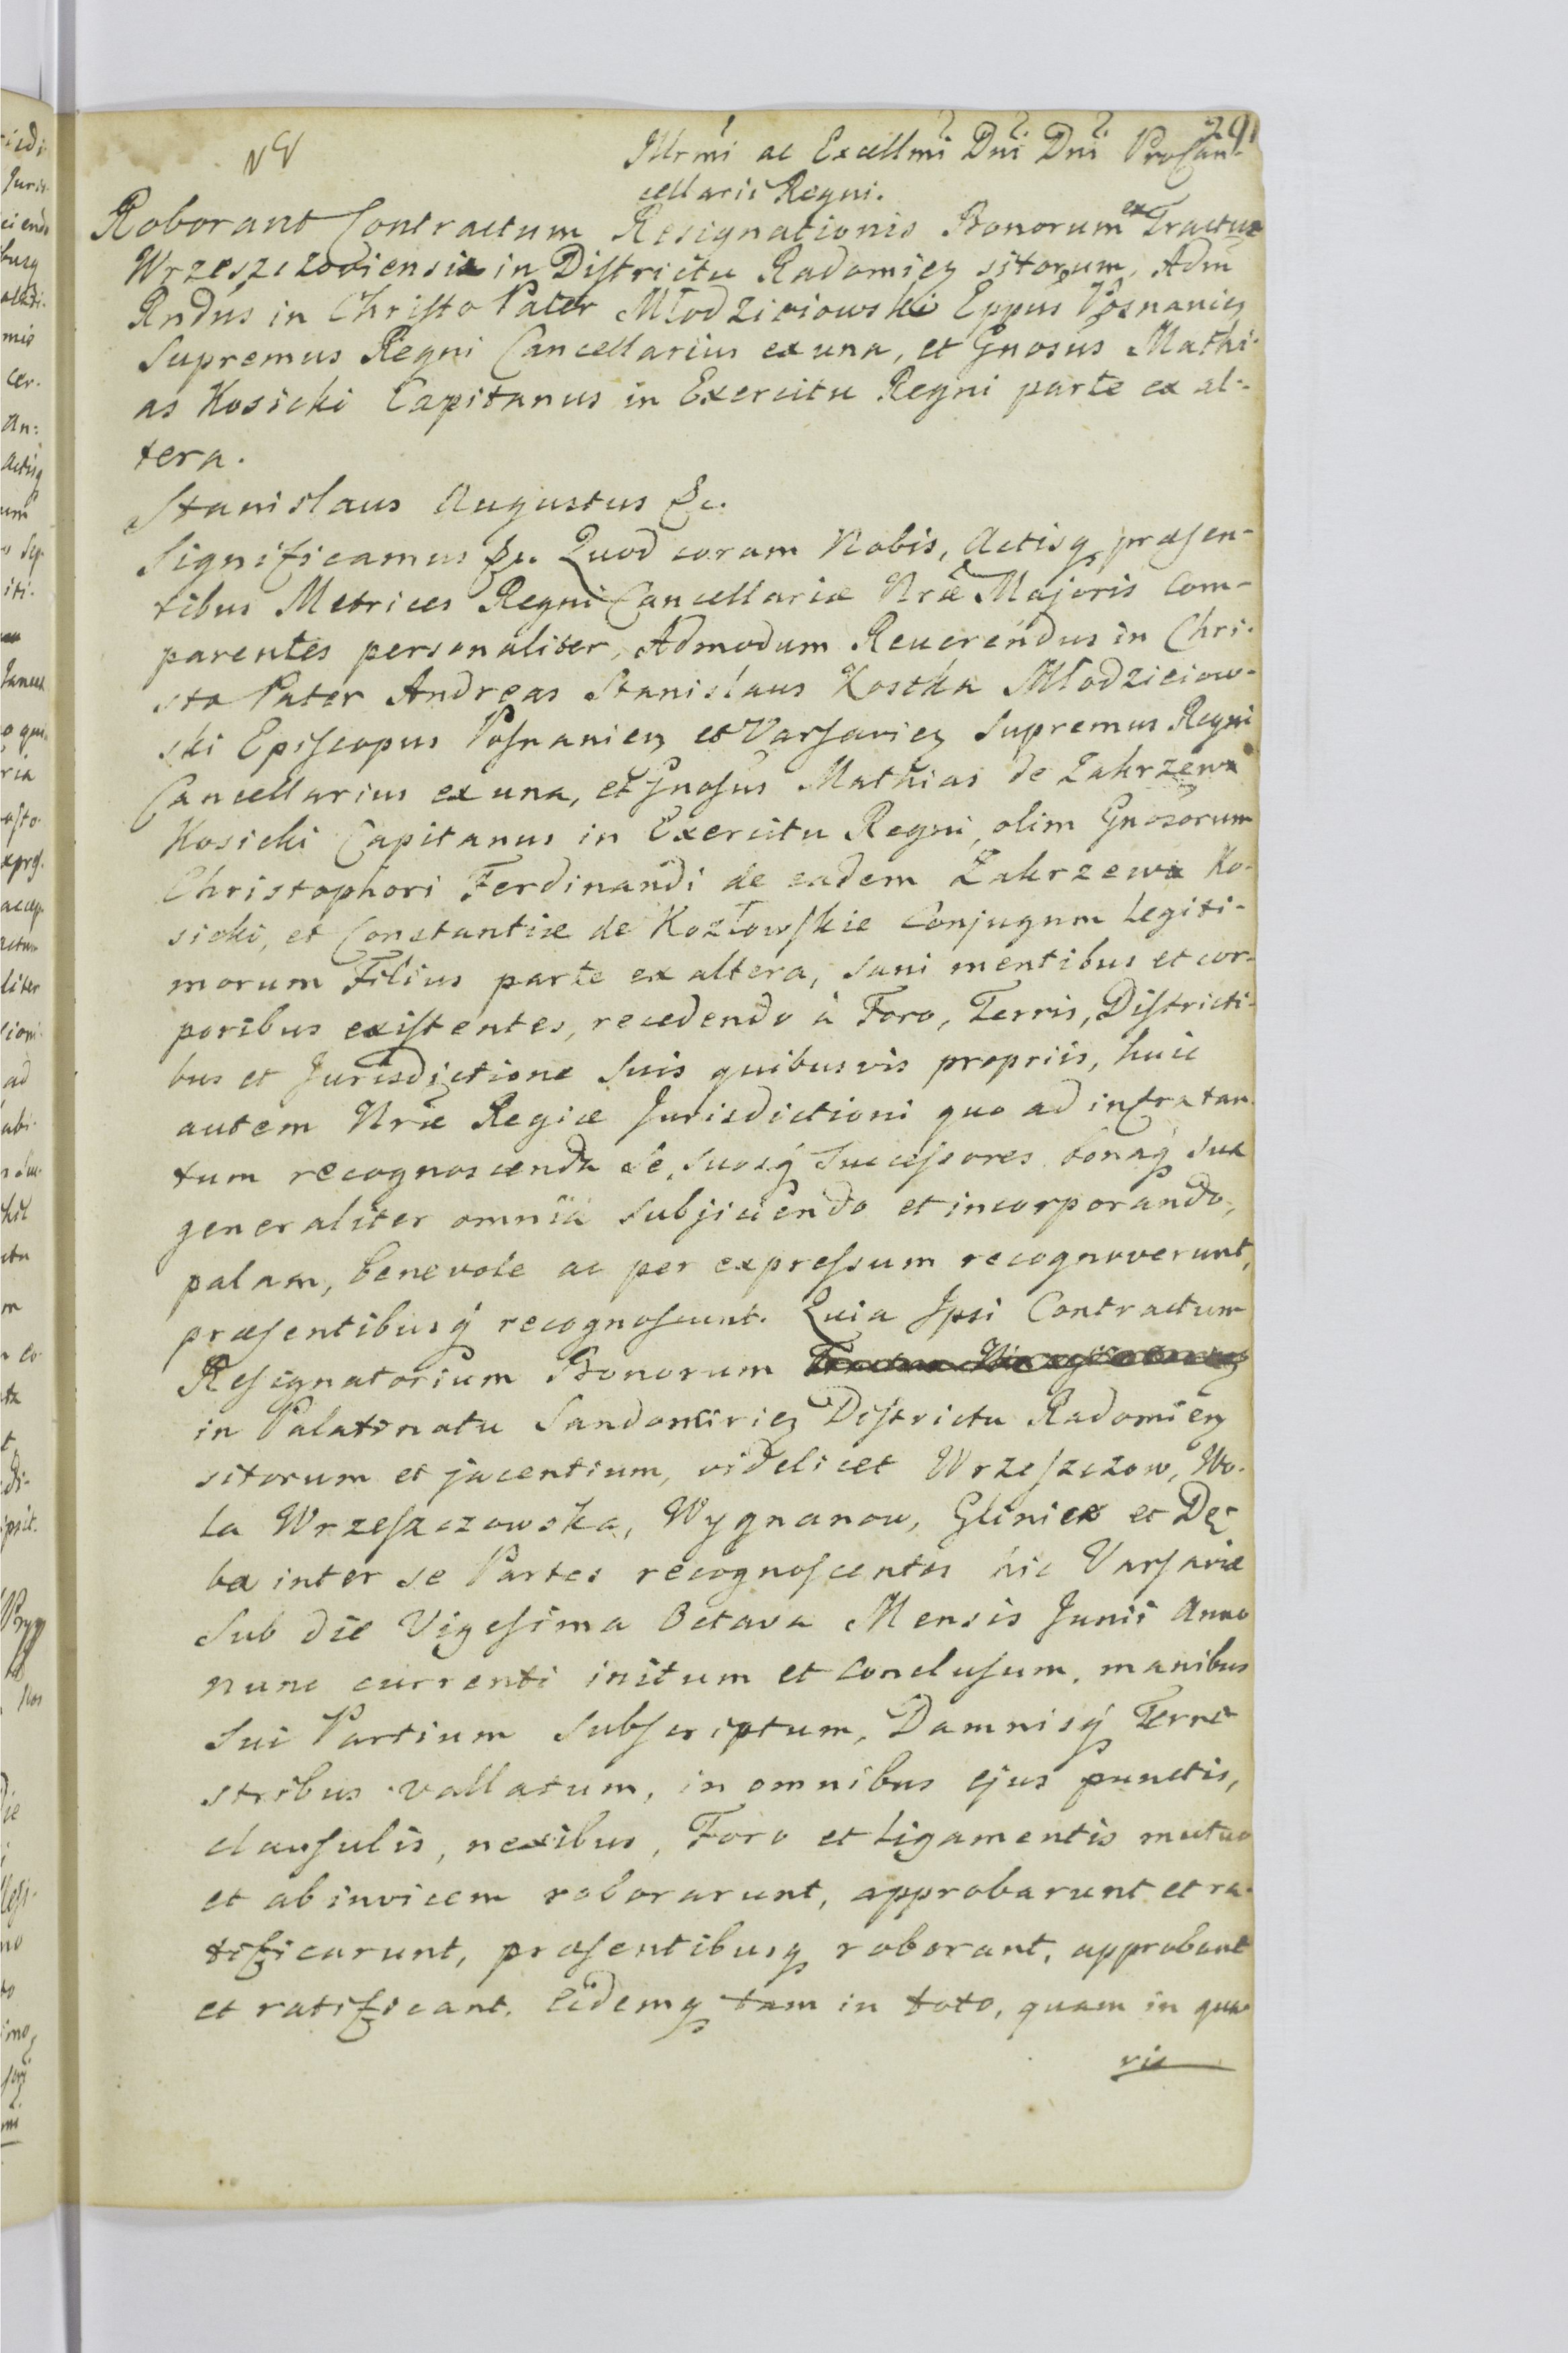 291
Illrmi ac Excellmi Dni Dni Procan-
cellarii Regni.
Roborant Contractum Resignationis Bonorum ex Tractu
Wrzeszczoviensi in Districtu Radomien sitorum, Adm
Rndus in Christo Pater Młodzieiowski Eppus Posnanien
Supremus Regni Cancellarius ex una, et Gnosus Mathi-
as Kosicki Capitanus in Exercitu Regni parte ex al-
tera.
Stanislaus Augustus &c.
Significamus &c. Quod coram Nobis, Actisq præsen-
tibus Metrices Regni Cancellariæ Nræ Majoris com-
parentes personaliter, Admodum Reverendus in Chri-
sto Pater Andreas Stanislaus Kostka Młodzieiow-
ski Episcopus Posnanien et Varsavien Supremus Regni
Cancellarius ex una, et Gnosus Mathias de Zakrzewa
Kosicki Capitanus in Exercitu Regni, olim Gnosorum
Christophori Ferdinandi de eadem Zakrzewa Ko-
sicki, et Constantiæ de Kozłowskie Conjugum Legiti-
morum Filius parte ex altera, sani mentibus et cor-
poribus existentes, recedendo à Foro, Terris, Districti-
bus et Jurisdictione suis quibusvis propriis, huic
autem Nræ Regiæ Jurisdictioni quo ad infra tan-
tum recognoscenda se, suosq Successores bonaq sua
generaliter omnia subjiciendo et incorporando,
palam, benevole ac per expressum recognoverunt,
præsentibusq recognoscunt. Quia Ipsi Contractum
Resignatorium Bonorum
in Palatinatu Sandomirien Districtu Radomien
sitorum et jacentium, videlicet Wrzeszczow, Wo-
la Wrzeszczowska, Wygnanow, Gliniec et Dę-
ba inter se Partes recognoscentes hic Varsaviæ
sub die Vigesima Octava Mensis Junii Anno
nunc currenti initum et conclusum, manibus
sui Partium subscriptum, Damnisq Terre-
stribus vallatum, in omnibus ejus punctis,
clausulis, nexibus, Foro et Ligamentis mutuo
et ab invicem roborarunt, approbarunt et ra-
tificarunt, præsentibusq roborant, approbant
et ratificant. Eidemq tam in toto, quam in qua-
vis